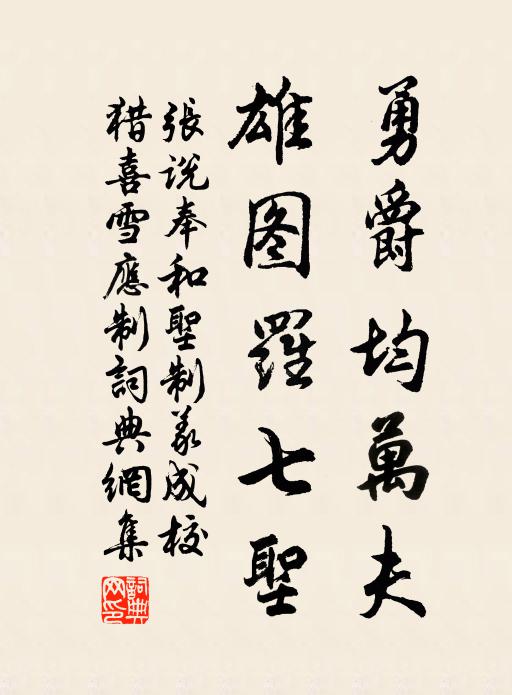 勇爵均萬夫
雄图羅七聖
張说奉和聖制義成校
猎喜雪應制詞典網集
詞典网印